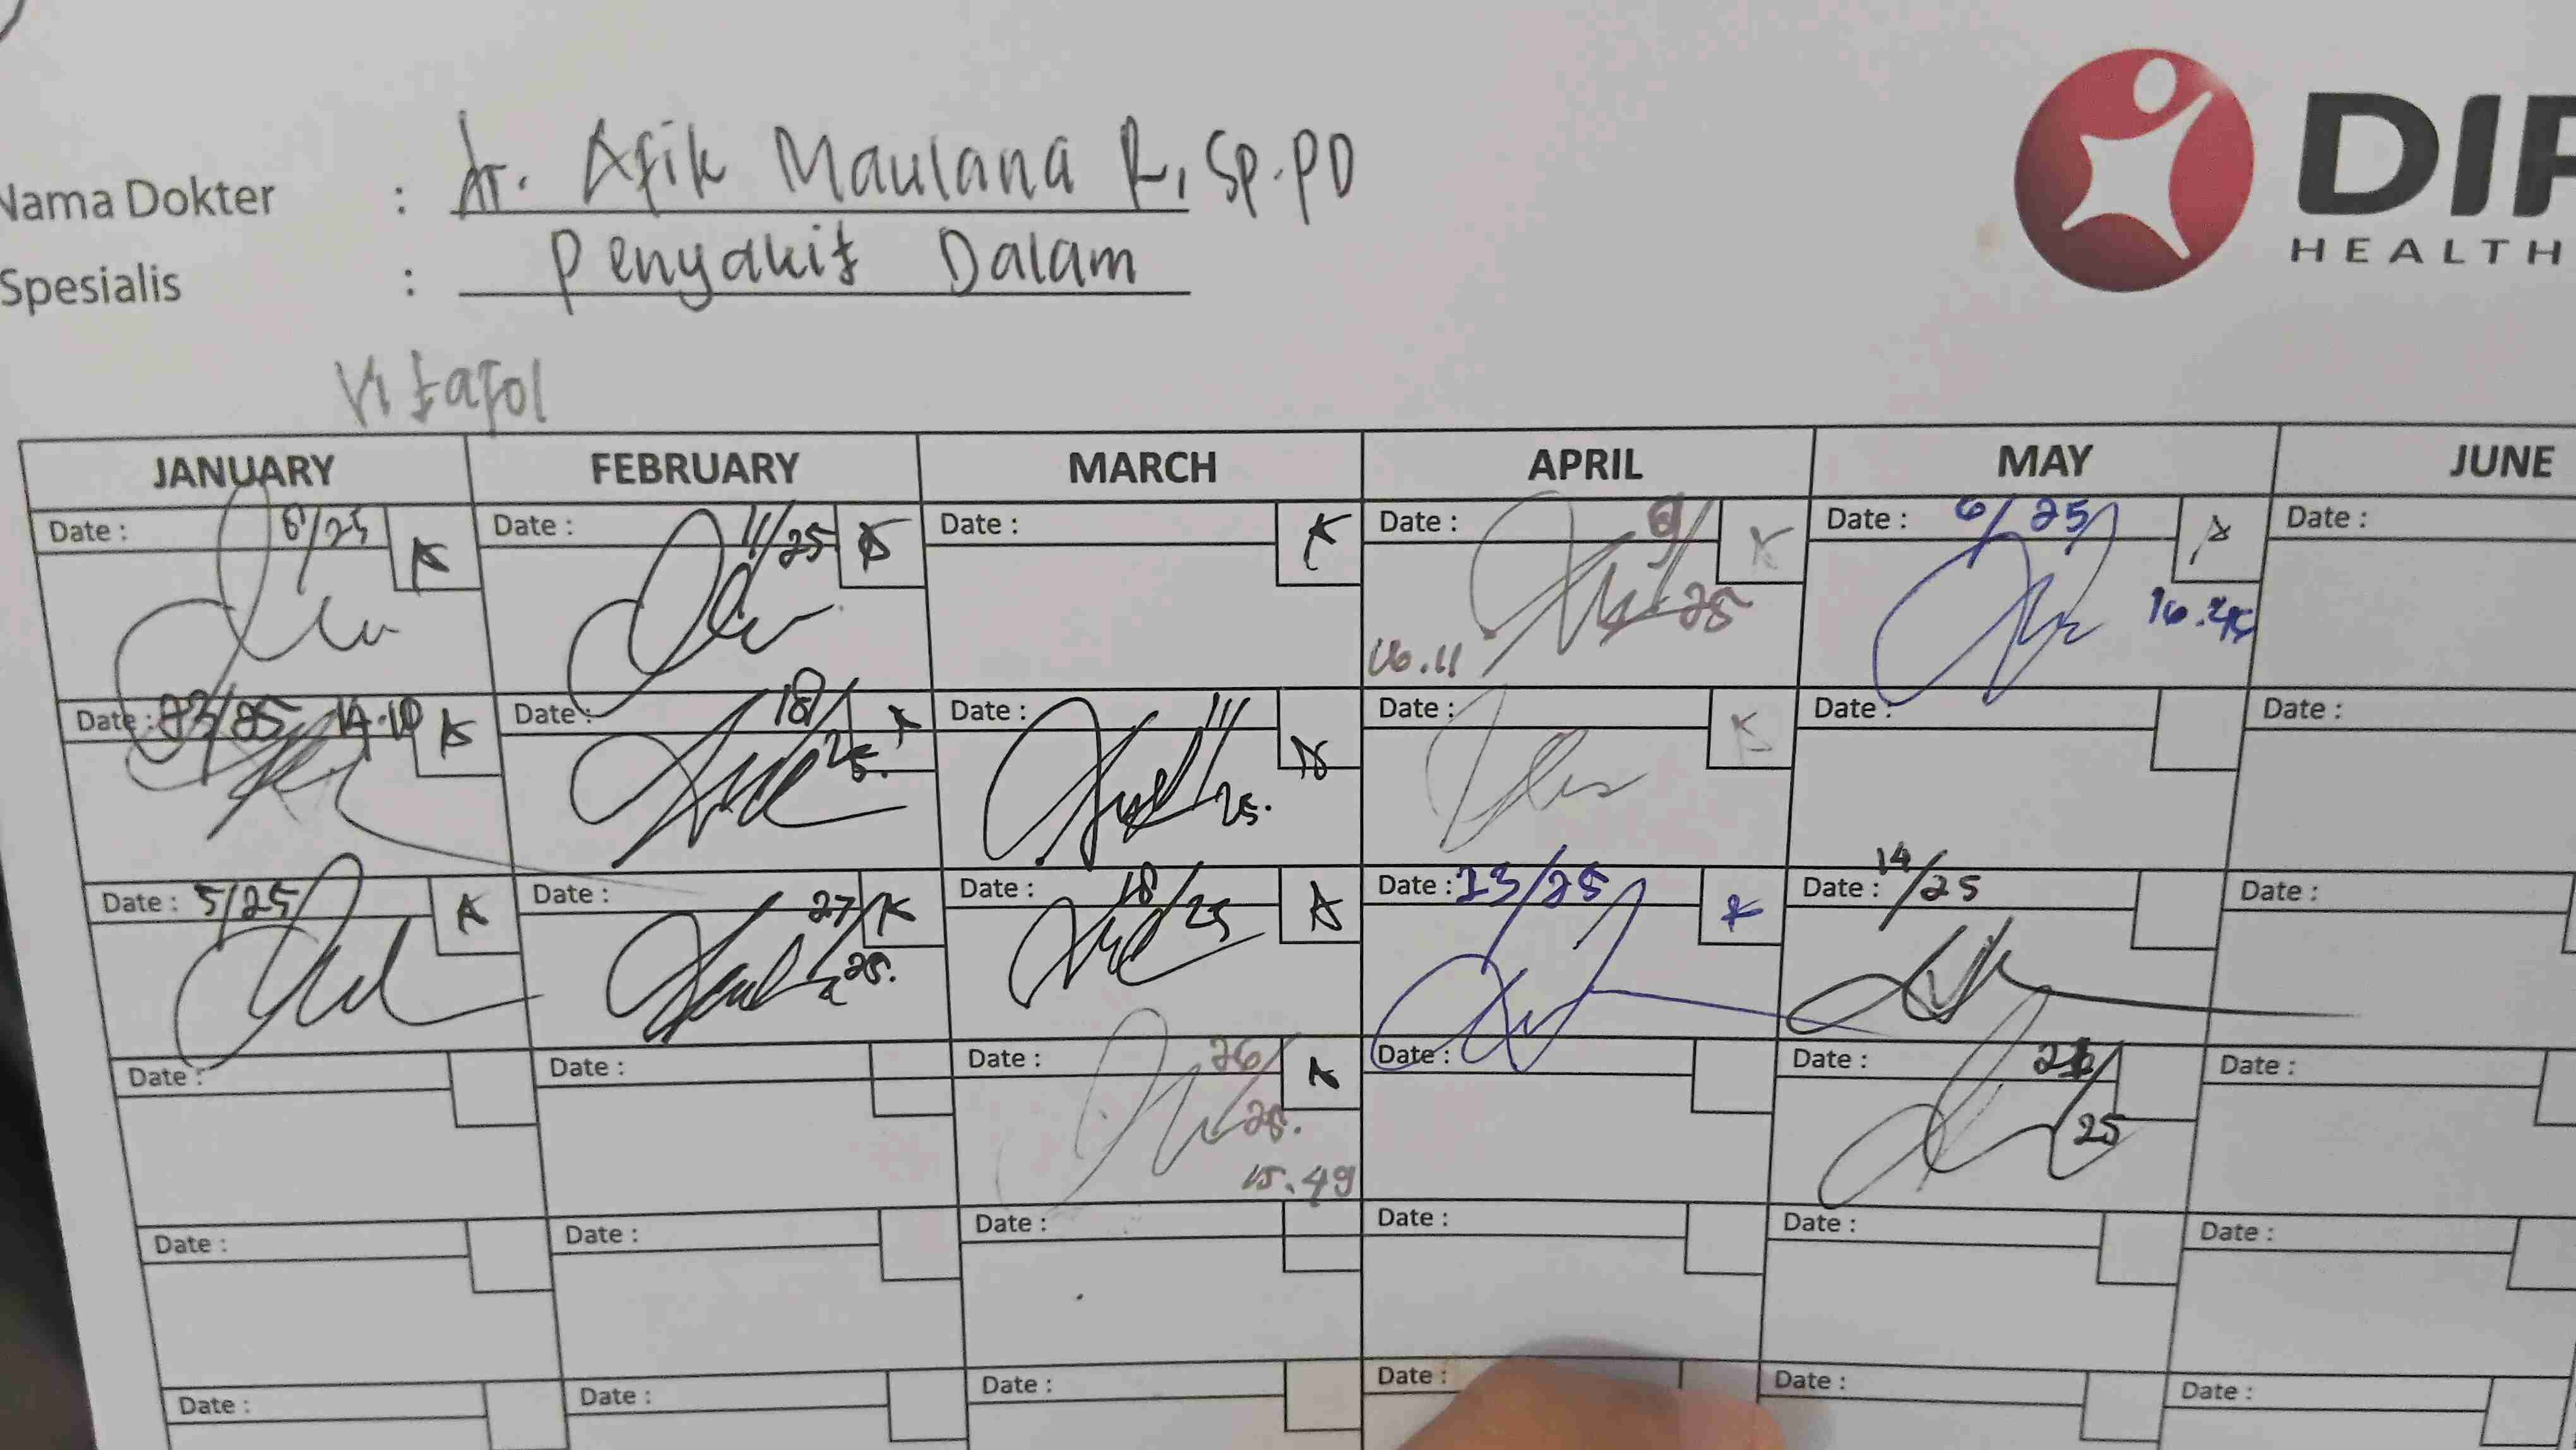 Nama Dokter : dr. Afik Maulana R, Sp.PD
Spesialis : Penyakit Dalam
DIP
HEALTH
Vitafol
JANUARY FEBRUARY MARCH APRIL MAY JUNE
Date : 8/25 Date : 11/25 Date : Date : 9/25 Date : 6/25 Date :
16.11 16.45
Date : 23/25 14.10 Date : 18/25. Date : 11/25. Date : Date : Date :
Date : 5/25 Date : 27/25. Date : 18/25 Date : 23/25 Date : 14/25 Date :
Date : Date : Date : 26/25. Date : Date : /25 Date :
15.49
Date : Date : Date : Date : Date : Date :
Date : Date : Date : Date : Date : Date :